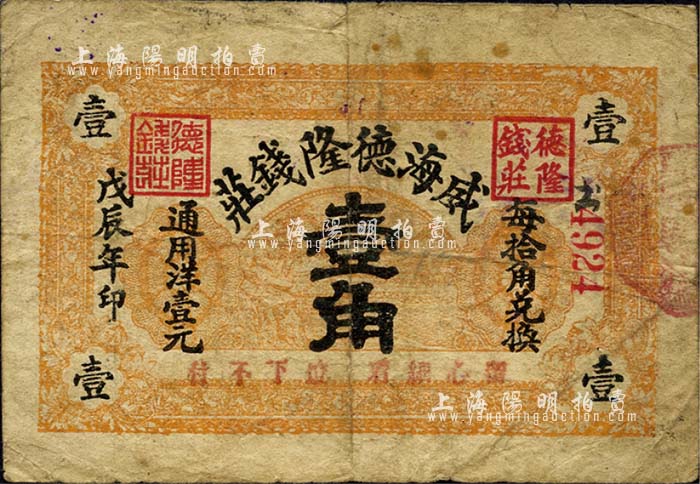 上海陽明拍賣
www.yangmingauction.com
壹
壹
威海德隆錢莊
德隆錢莊
德隆錢莊
每拾角兌換
通用洋壹元
壹角
戊辰年印
4924
下不
壹
壹
上海陽明拍賣
www.yangmingauction.com
上海陽明拍賣
www.yangmingauction.com